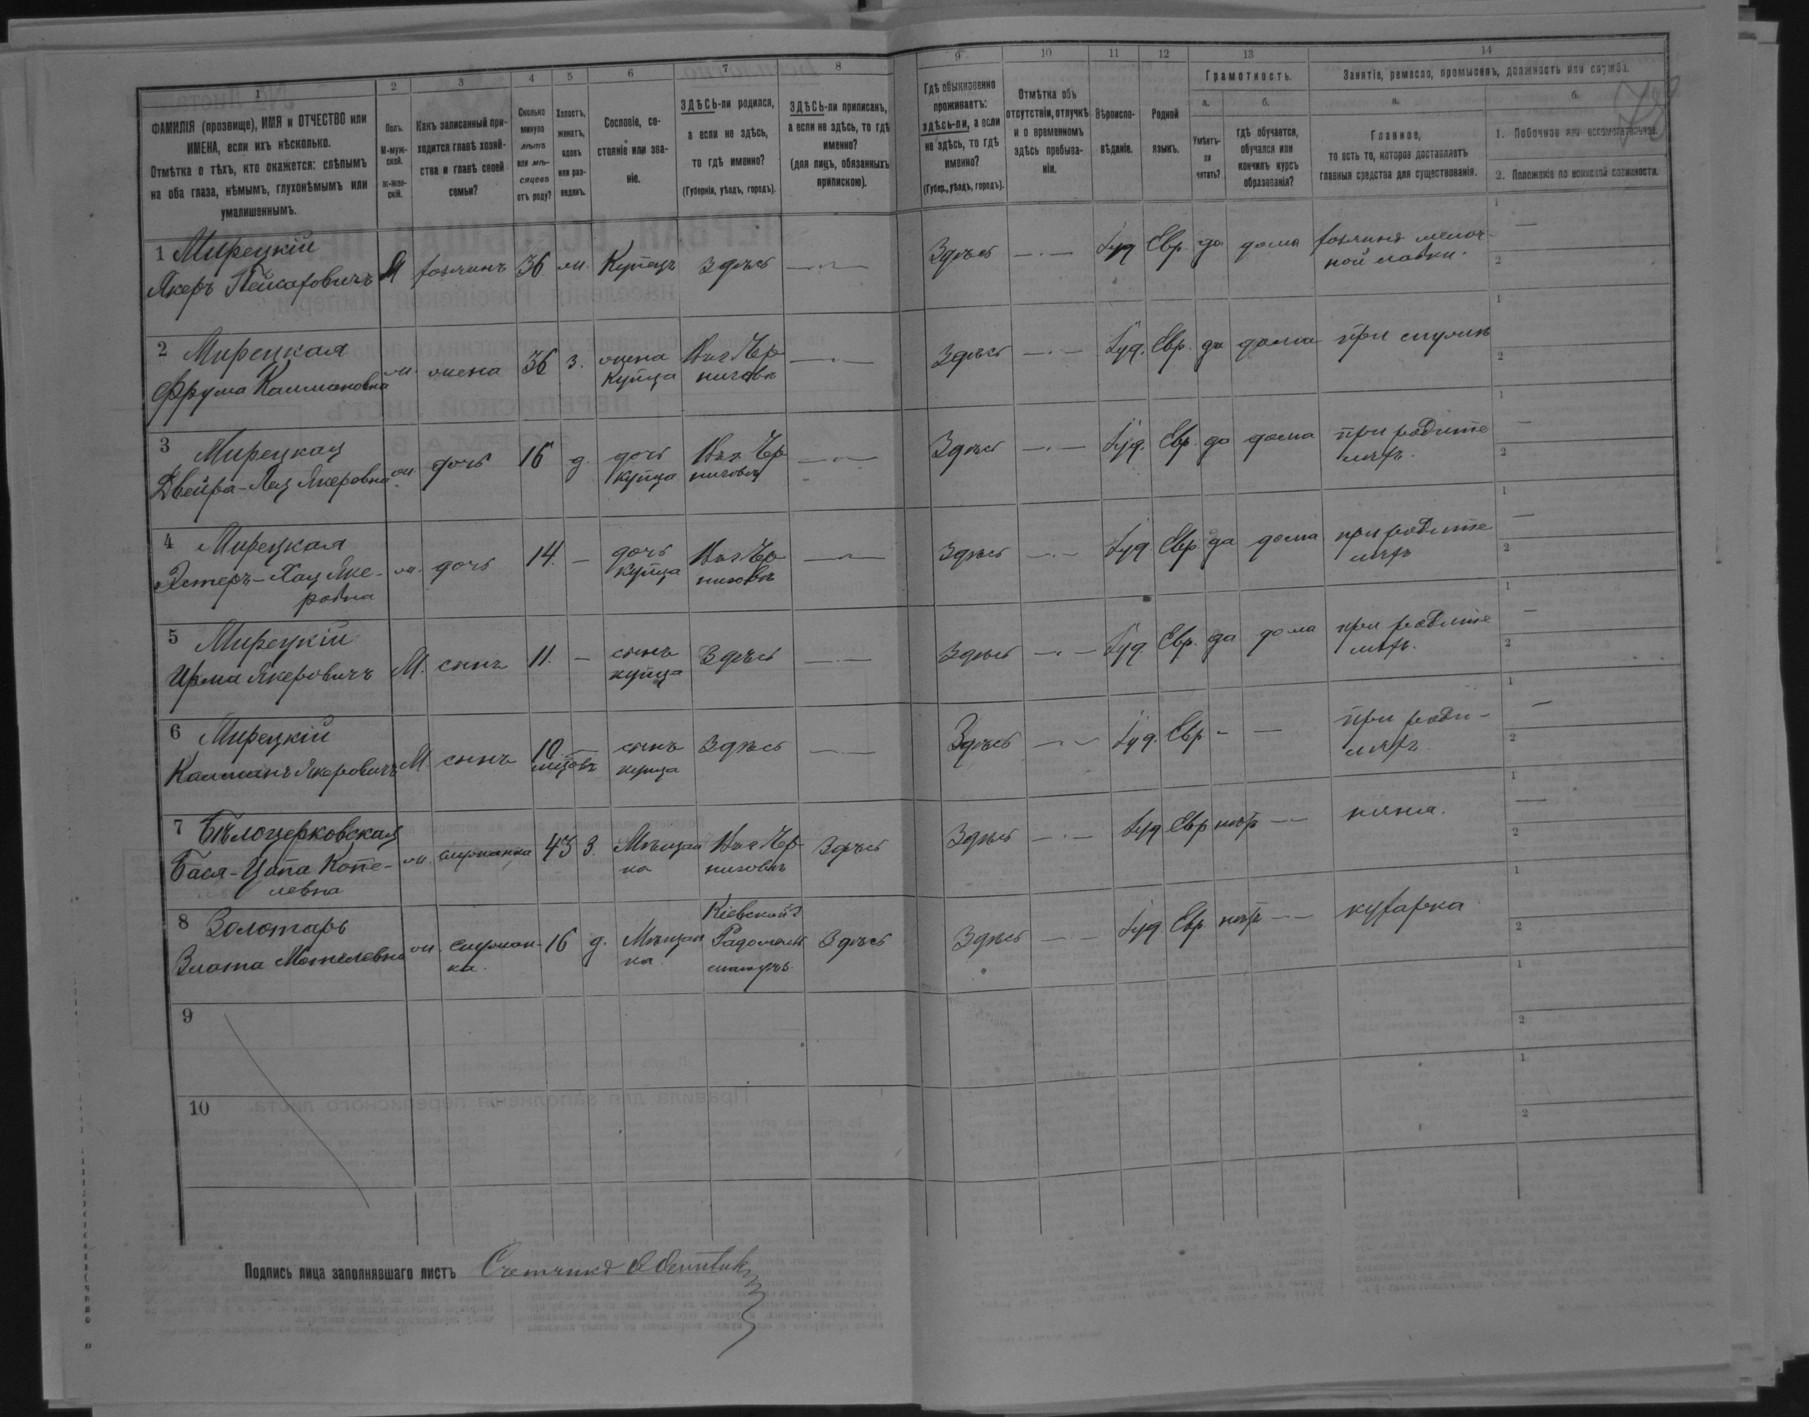 1 2 3 4 5 6 7 8 9 10 11 12 13 14
ФАМИЛІЯ (прозвище), ИМЯ и ОТЧЕСТВО или
ИМЕНА, если ихъ нѣсколько.
Отмѣтка о тѣхъ, кто окажется: слѣпымъ
на оба глаза, нѣмымъ, глухонѣмымъ или
умалишеннымъ.
Полъ.
М-муж-
ской.
Ж-жен-
скій.
Какъ записанный при-
ходится главѣ хозяй-
ства и главѣ своей
семьи?
Сколько
минуло
лѣтъ
или мѣ-
сяцевъ
отъ роду?
Холостъ,
женатъ,
вдовъ
или раз-
веденъ.
Сословіе, со-
стояніе или зва-
ніе.
ЗДѢСЬ-ли родился,
а если не здѣсь,
то гдѣ именно?
(Губернія, уѣздъ, городъ).
ЗДѢСЬ-ли приписанъ,
а если не здѣсь, то гдѣ
именно?
(для лицъ, обязанныхъ
припискою).
Гдѣ обыкновенно
проживаетъ:
здѣсь-ли, а если
не здѣсь, то гдѣ
именно?
(Губер., уѣздъ, городъ).
Отмѣтка объ
отсутствіи, отлучкѣ
и о временномъ
здѣсь пребыва-
ніи.
Вѣроиспо-
вѣданіе.
Родной
языкъ.
Грамотность.
а. б.
Умѣетъ-
ли
читать?
гдѣ обучается,
обучался или
кончилъ курсъ
образованія?
Занятіе, ремесло, промыселъ, должность или служба.
а. б.
Главное,
то есть то, которое доставляетъ
главныя средства для существованія.
1. Побочное или вспомогательное.
2. Положеніе по воинской повинности.
1 Мирецкій
Якеръ Пейсаховичъ М хозяинъ 36 ж. Купецъ здѣсь — Здѣсь — Іуд Евр. да дома хозяинъ мелоч-
ной лавки.
2 Мирецкая
Фрума Калмановна ж. жена 36 з. жена
купца Чер-
ниговъ — Здѣсь — Іуд. Евр. да дома при мужѣ
3 Мирецкая
Двейра-Лея Якеровна ж. дочь 16 д. дочь
купца Чер-
ниговъ — Здѣсь — Іуд. Евр. да дома при родите
ляхъ.
4 Мирецкая
Эстеръ-Хая Яке-
ровна ж. дочь 14. — дочь
купца Чер-
ниговъ — Здѣсь — Іуд Евр. да дома при родите
ляхъ
5 Мирецкій
Ирма Якеровичъ М. сынъ 11. — сынъ
купца Здѣсь — Здѣсь — Іуд Евр. да дома при родите
ляхъ.
6 Мирецкій
Калманъ Якеровичъ М. сынъ 10
мѣсяцевъ — сынъ
купца Здѣсь — Здѣсь — Іуд. Евр. — — при роди-
ляхъ
7 Бѣлоцерковская
Бася-Ципа Копе-
левна ж. служанка 43 з. Мѣщан
ка Чер-
ниговъ Здѣсь Здѣсь — Іуд Евр нѣтъ — няня.
8 Золотарь
Злота Мотелевна ж. служан-
ка. 16 д. Мѣщан
ка. Кіевской г
Радомысл Здѣсь Здѣсь — Іуд Евр нѣтъ — кухарка
9
10
Подпись лица заполнявшаго листъ Счетчикъ